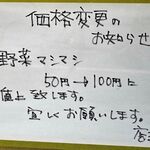 価格変更の
お知らせ
野菜マシマシ
50円→100円に
値上致します。
宜しくお願いします。
店主